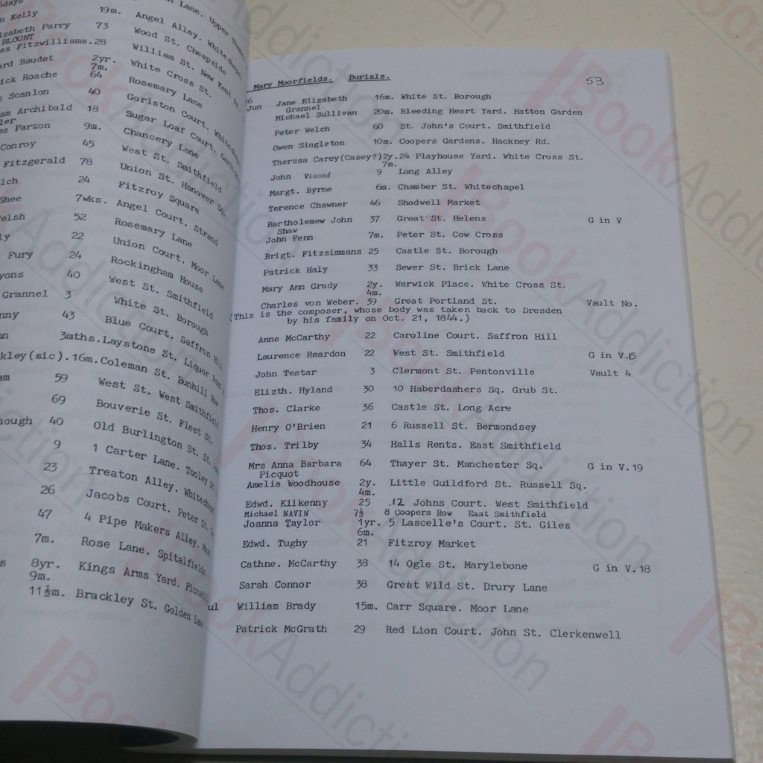 n Kelly 19m. Angel Alley. White
Lane. Upper
izabeth Parry 73 Wood St. Cheapside
BLOUNT
es Fitzwilliams. 28 William St. New Kent
rd Baudet 2yr. 7m. White Cross St.
ick Roache 64 Rosemary Lane
Scanlon 40 Gorlston Court. White
as Archibald 18 Sugar Loaf Court.
ler
es Parson 9m. Chancery Lane
Conroy 45 West St. Smithfield
Fitzgerald 78 Union St. Hanover Sq.
lch 24 Fitzroy Square
Shee 7wks. Angel Court. Strand
elsh 52 Rosemary Lane
ly 22 Union Court. Moor Lane
Fury 24 Rockingham House
yons 40 West St. Smithfield
Grannel 3 White St. Borough
nny 43 Blue Court. Saffron Hill
n 3mths. Laystone St. Liquor
kley(sic). 16m. Coleman St. Bunhill Row
am 59 West St. West Smithfield
69 Bouverie St. Fleet St.
nough 40 Old Burlington St. St.
9 1 Carter Lane. Tooley St.
23 Treaton Alley. Whitechapel
26 Jacobs Court. Peter St.
47 4 Pipe Makers Alley.
7m. Rose Lane. Spitalfields
s 8yr. 9m. Kings Arms Yard.
11½m. Brackley St. Golden Lane
Mary Moorfields. Burials. 53
Jun Jane Elizabeth Grannel 16m. White St. Borough
Michael Sullivan 20m. Bleeding Heart Yard. Hatton Garden
Peter Welch 60 St. John's Court. Smithfield
Owen Singleton 10m. Coopers Gardens. Hackney Rd.
Theresa Carey(Casey?) 2y. 7m. 24 Playhouse Yard. White Cross St.
John 9 Long Alley
Margt. Byrne 6m. Chamber St. Whitechapel
Terence Chawner 46 Shadwell Market
Bartholemew John Shaw 37 Great St. Helens G in V
John Fenn 7m. Peter St. Cow Cross
Brigt. Fitzsimmans 25 Castle St. Borough
Patrick Haly 33 Sewer St. Brick Lane
Mary Ann Grady 2y. 4m. Warwick Place. White Cross St.
Charles von Weber. 39 Great Portland St. Vault No.
(This is the composer, whose body was taken back to Dresden
by his family on Oct. 21, 1844.)
Anne McCarthy 22 Caroline Court. Saffron Hill
Laurence Reardon 22 West St. Smithfield G in V.15
John Testar 3 Clermont St. Pentonville Vault 4
Elizth. Hyland 30 10 Haberdashers Sq. Grub St.
Thos. Clarke 36 Castle St. Long Acre
Henry O'Brien 21 6 Russell St. Bermondsey
Thos. Trilby 34 Halls Rents. East Smithfield
Mrs Anna Barbara Picquot 64 Thayer St. Manchester Sq. G in V.19
Amelia Woodhouse 2y. 4m. Little Guildford St. Russell Sq.
Edwd. Kilkenny 25 12 Johns Court. West Smithfield
Michael NAVIN 7½ 8 Coopers How East Smithfield
Joanna Taylor 1yr. 6m. 5 Lascelle's Court. St. Giles
Edwd. Tughy 21 Fitzroy Market
Cathne. McCarthy 38 14 Ogle St. Marylebone G in V.18
Sarah Connor 38 Great Wild St. Drury Lane
ul William Brady 15m. Carr Square. Moor Lane
Patrick McGrath 29 Red Lion Court. John St. Clerkenwell
BookAddiction